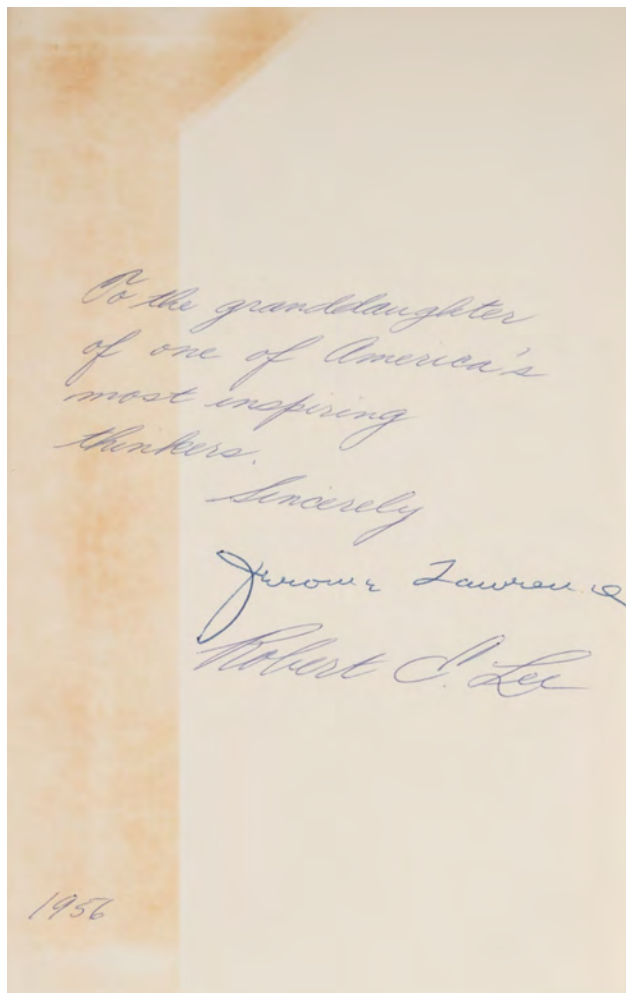 To the granddaughter
of one of America's
most inspiring
thinkers.
Sincerely
Jerome Lawrence
Robert E. Lee
1956